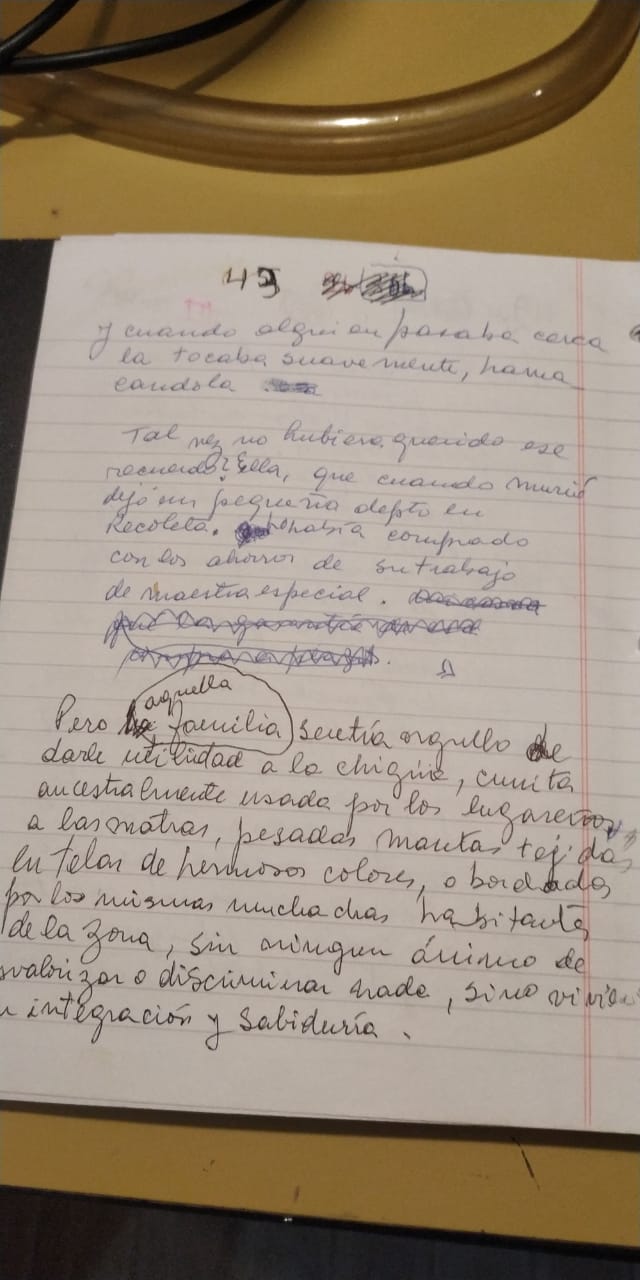 43
y cuando alguien pasaba cerca
la tocaba suavemente, hama
candola
Tal vez no hubiera querido ese
recuerdo? Ella, que cuando murió
dejó un pequeño depto en
Recoleta. Lo había comprado
con los ahorros de su trabajo
de maestra especial.
Pero aquella familia sentía orgullo de
darle utilidad a la chigüe, cunita
ancestralmente usada por los lugareños,
a las matras, pesadas mantas tejidas
en telas de hermosos colores, o bordadas
por los mismas muchachas habitantes
de la zona, sin ningun ánimo de
svalorizar o discriminar nada, sino
integración y sabiduría.